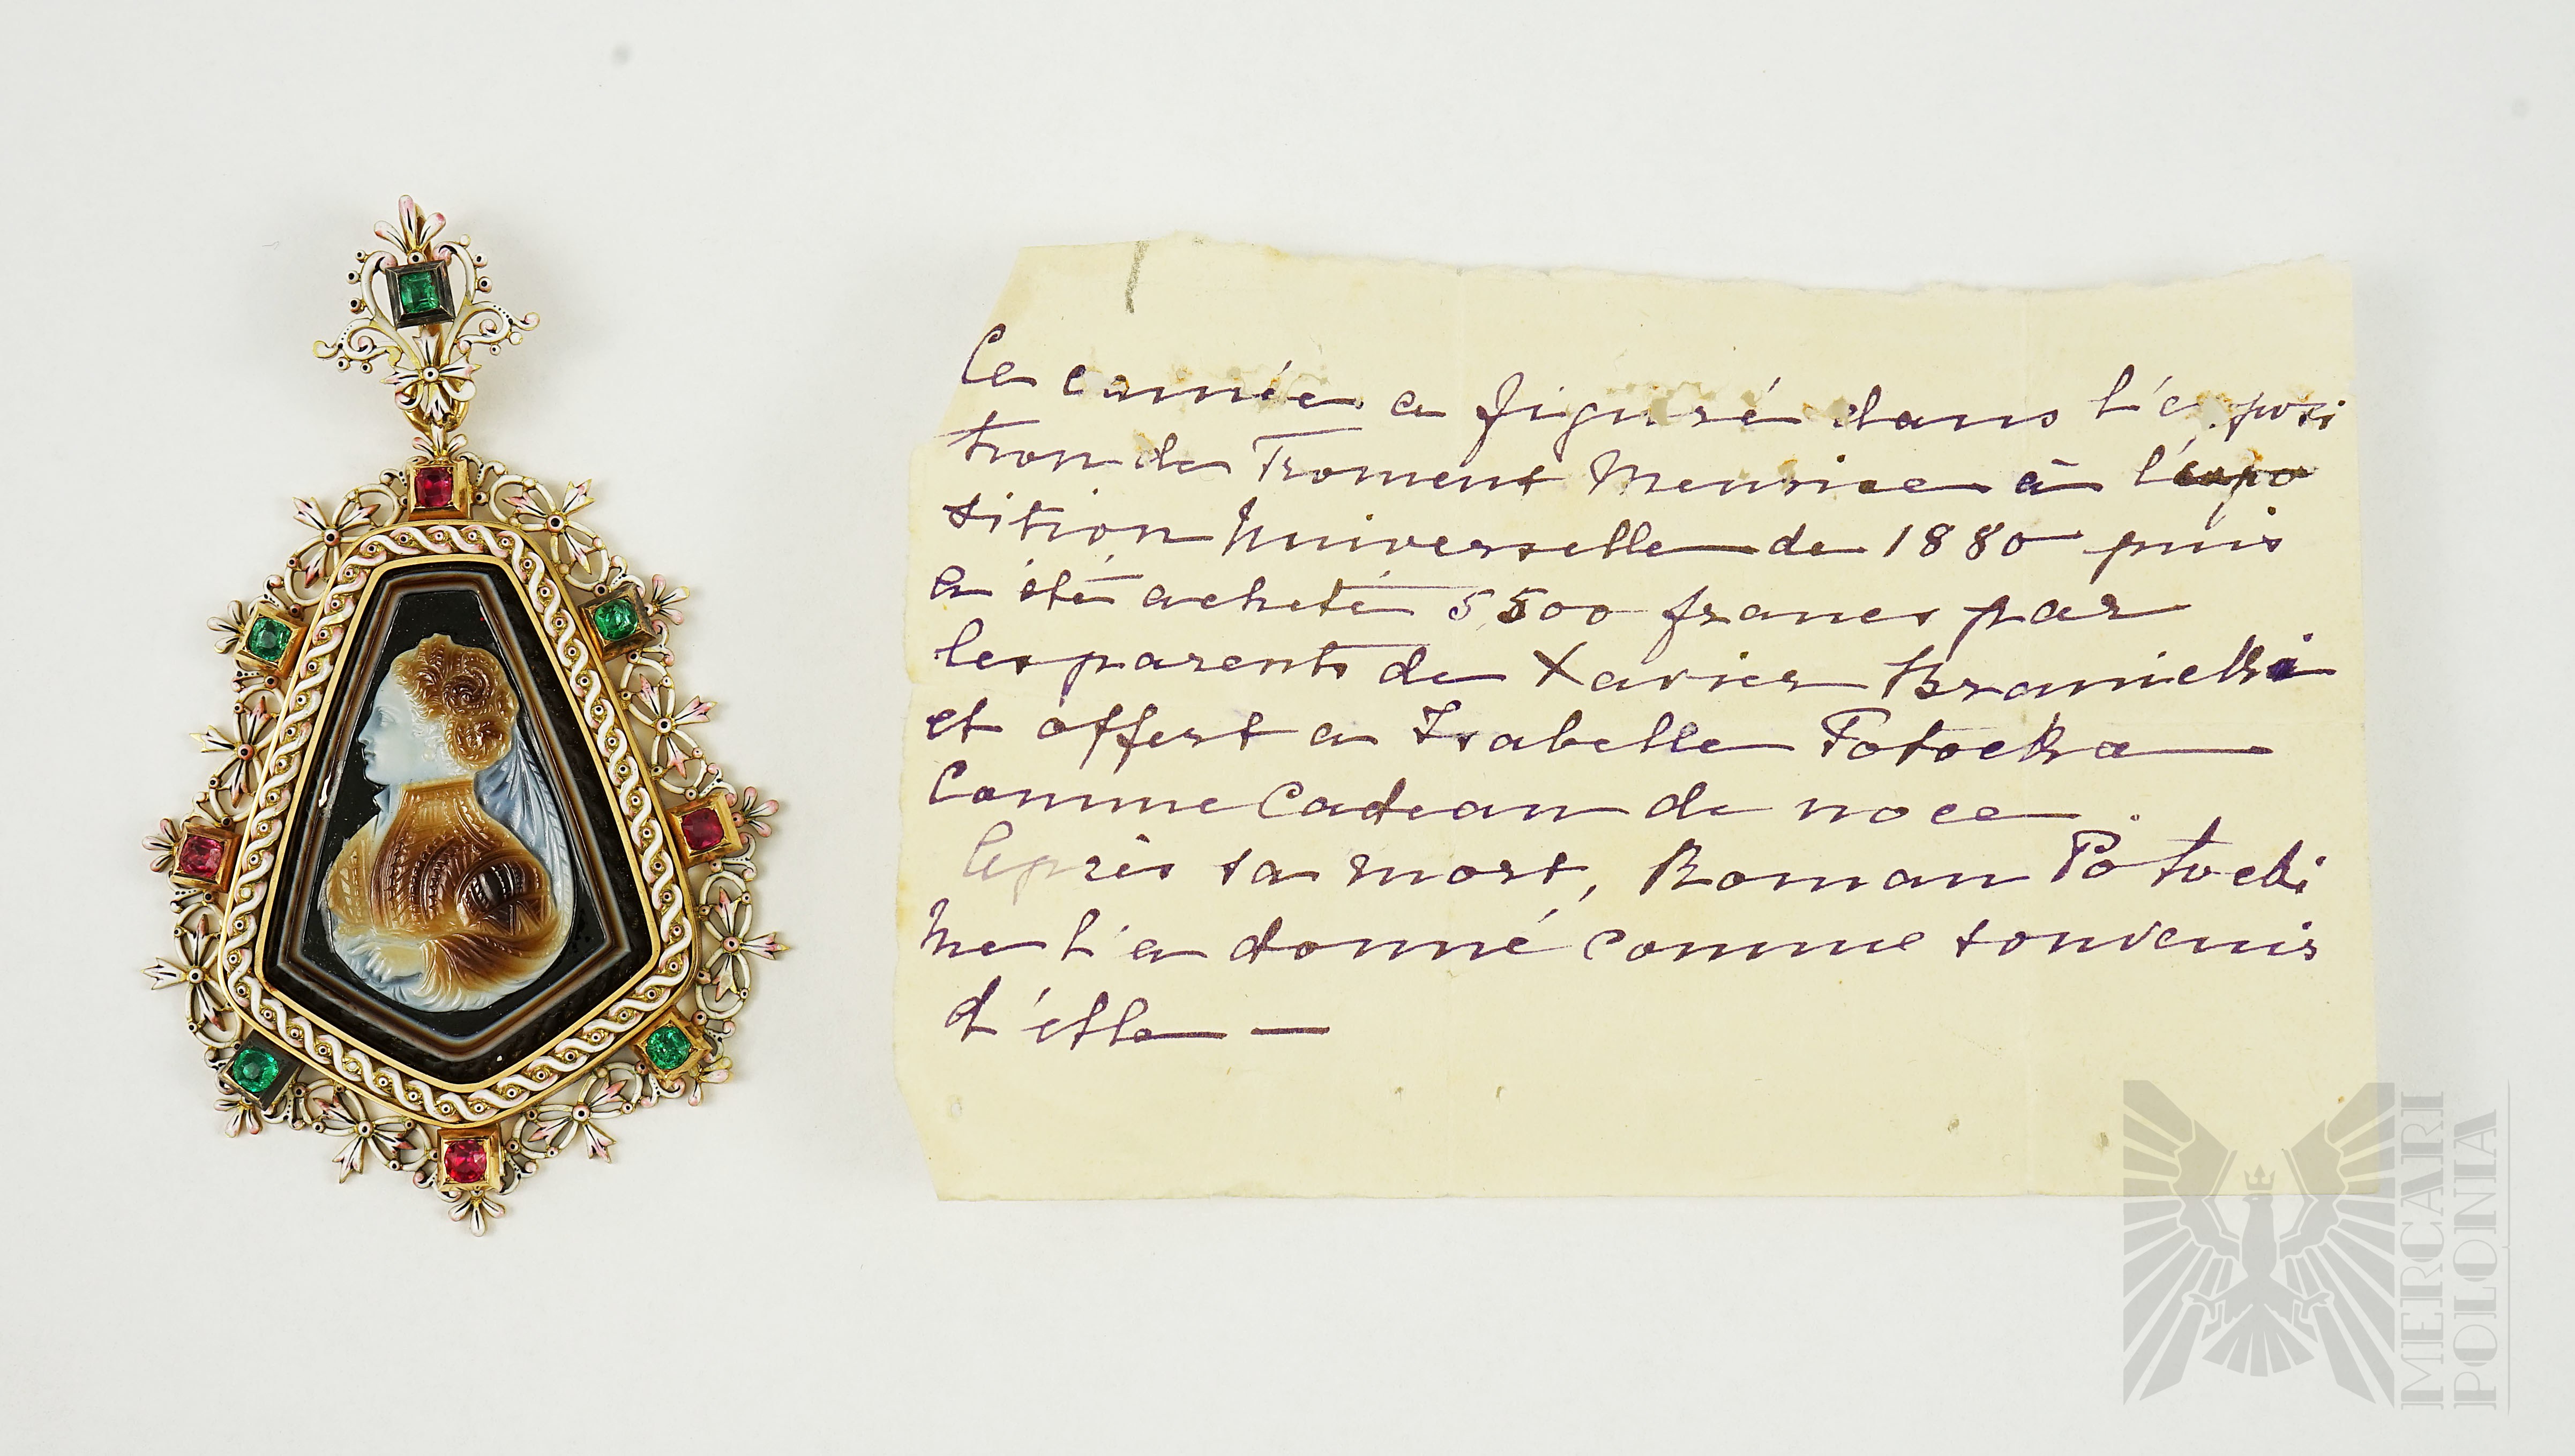 Ce camée a figuré dans l'exposi
tion de Froment Meurice à l'expo
sition Universelle de 1880 puis
a été acheté 5,500 francs par
les parents de Xavier Branicki
et offert a Isabelle Potocka
Comme Cadeau de noce.
Après sa mort, Roman Potocki
me l'a donné comme souvenir
d'elle —
MERCARI
POLONIA